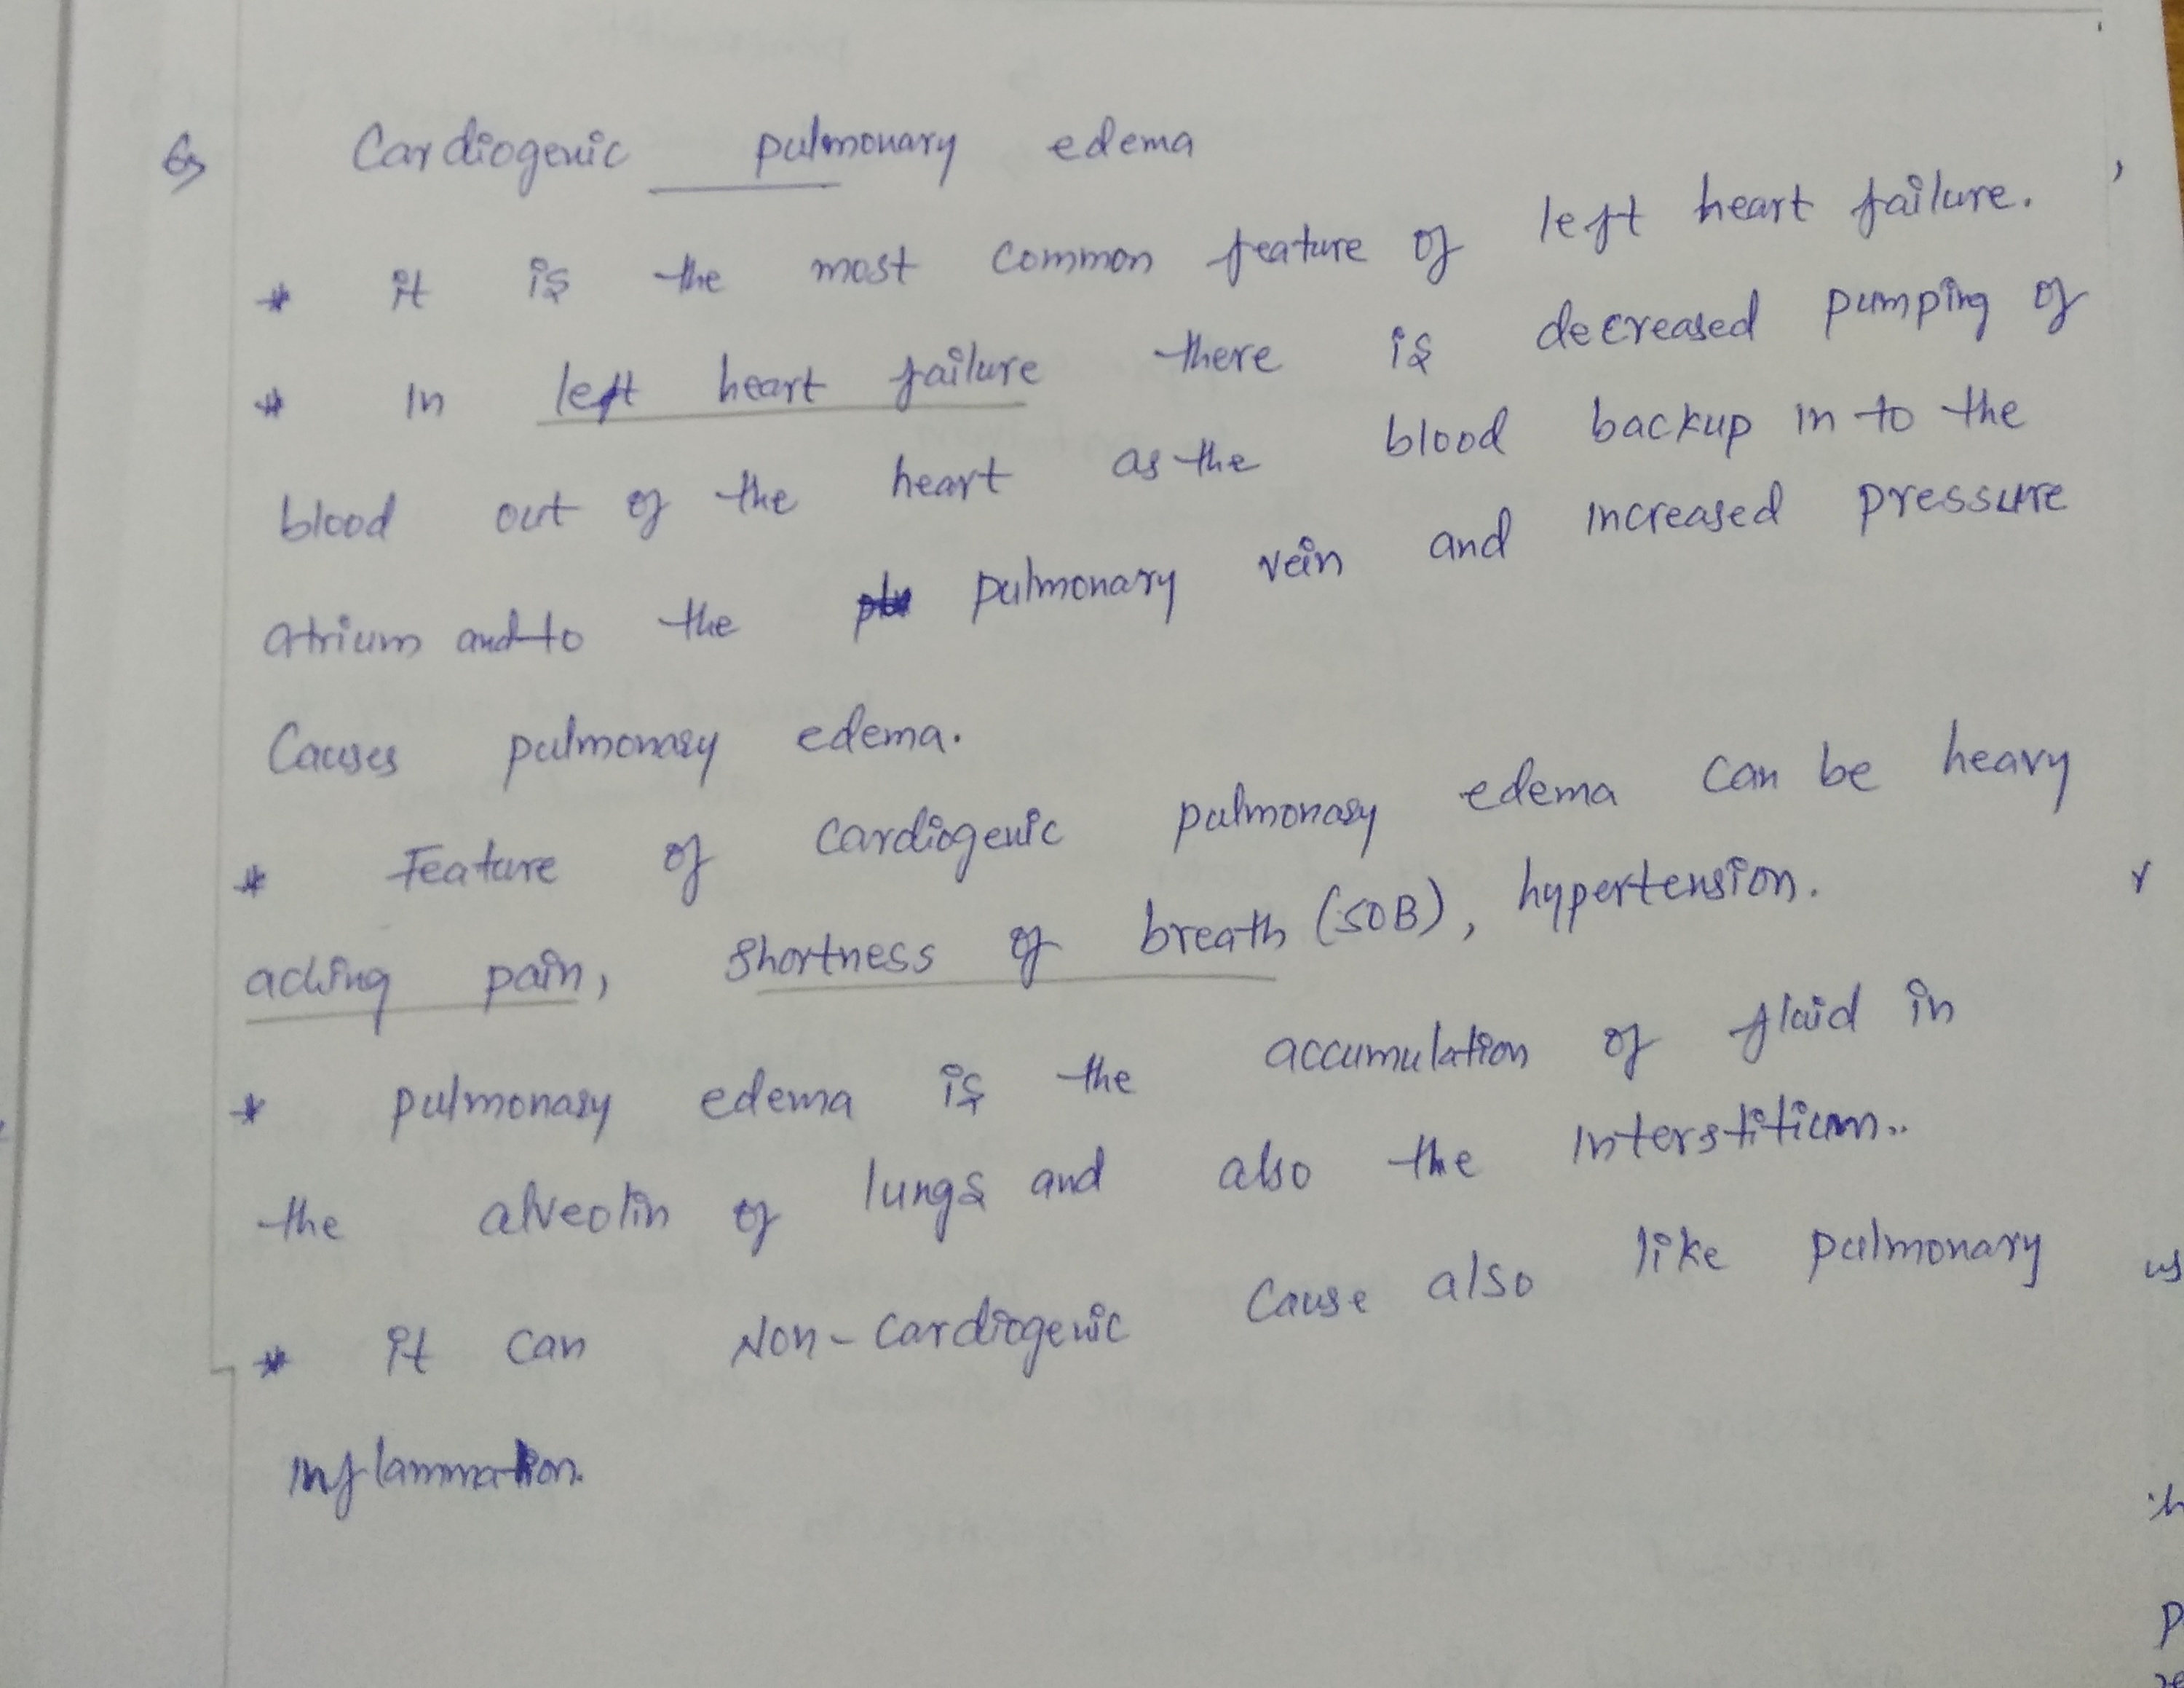 6) Cardiogenic pulmonary edema
* it is the most common feature of left heart failure.
* In left heart failure there is decreased pumping of
blood out of the heart as the blood backup in to the
atrium and to the pulmonary vein and increased pressure
Causes pulmonary edema.
* Feature of cardiogenic pulmonary edema can be heavy
aching pain, shortness of breath (SOB), hypertension.
* pulmonary edema is the accumulation of fluid in
the alveolin of lungs and also the Interstitium..
* it can Non-cardiogenic cause also like pulmonary
Inflammation.